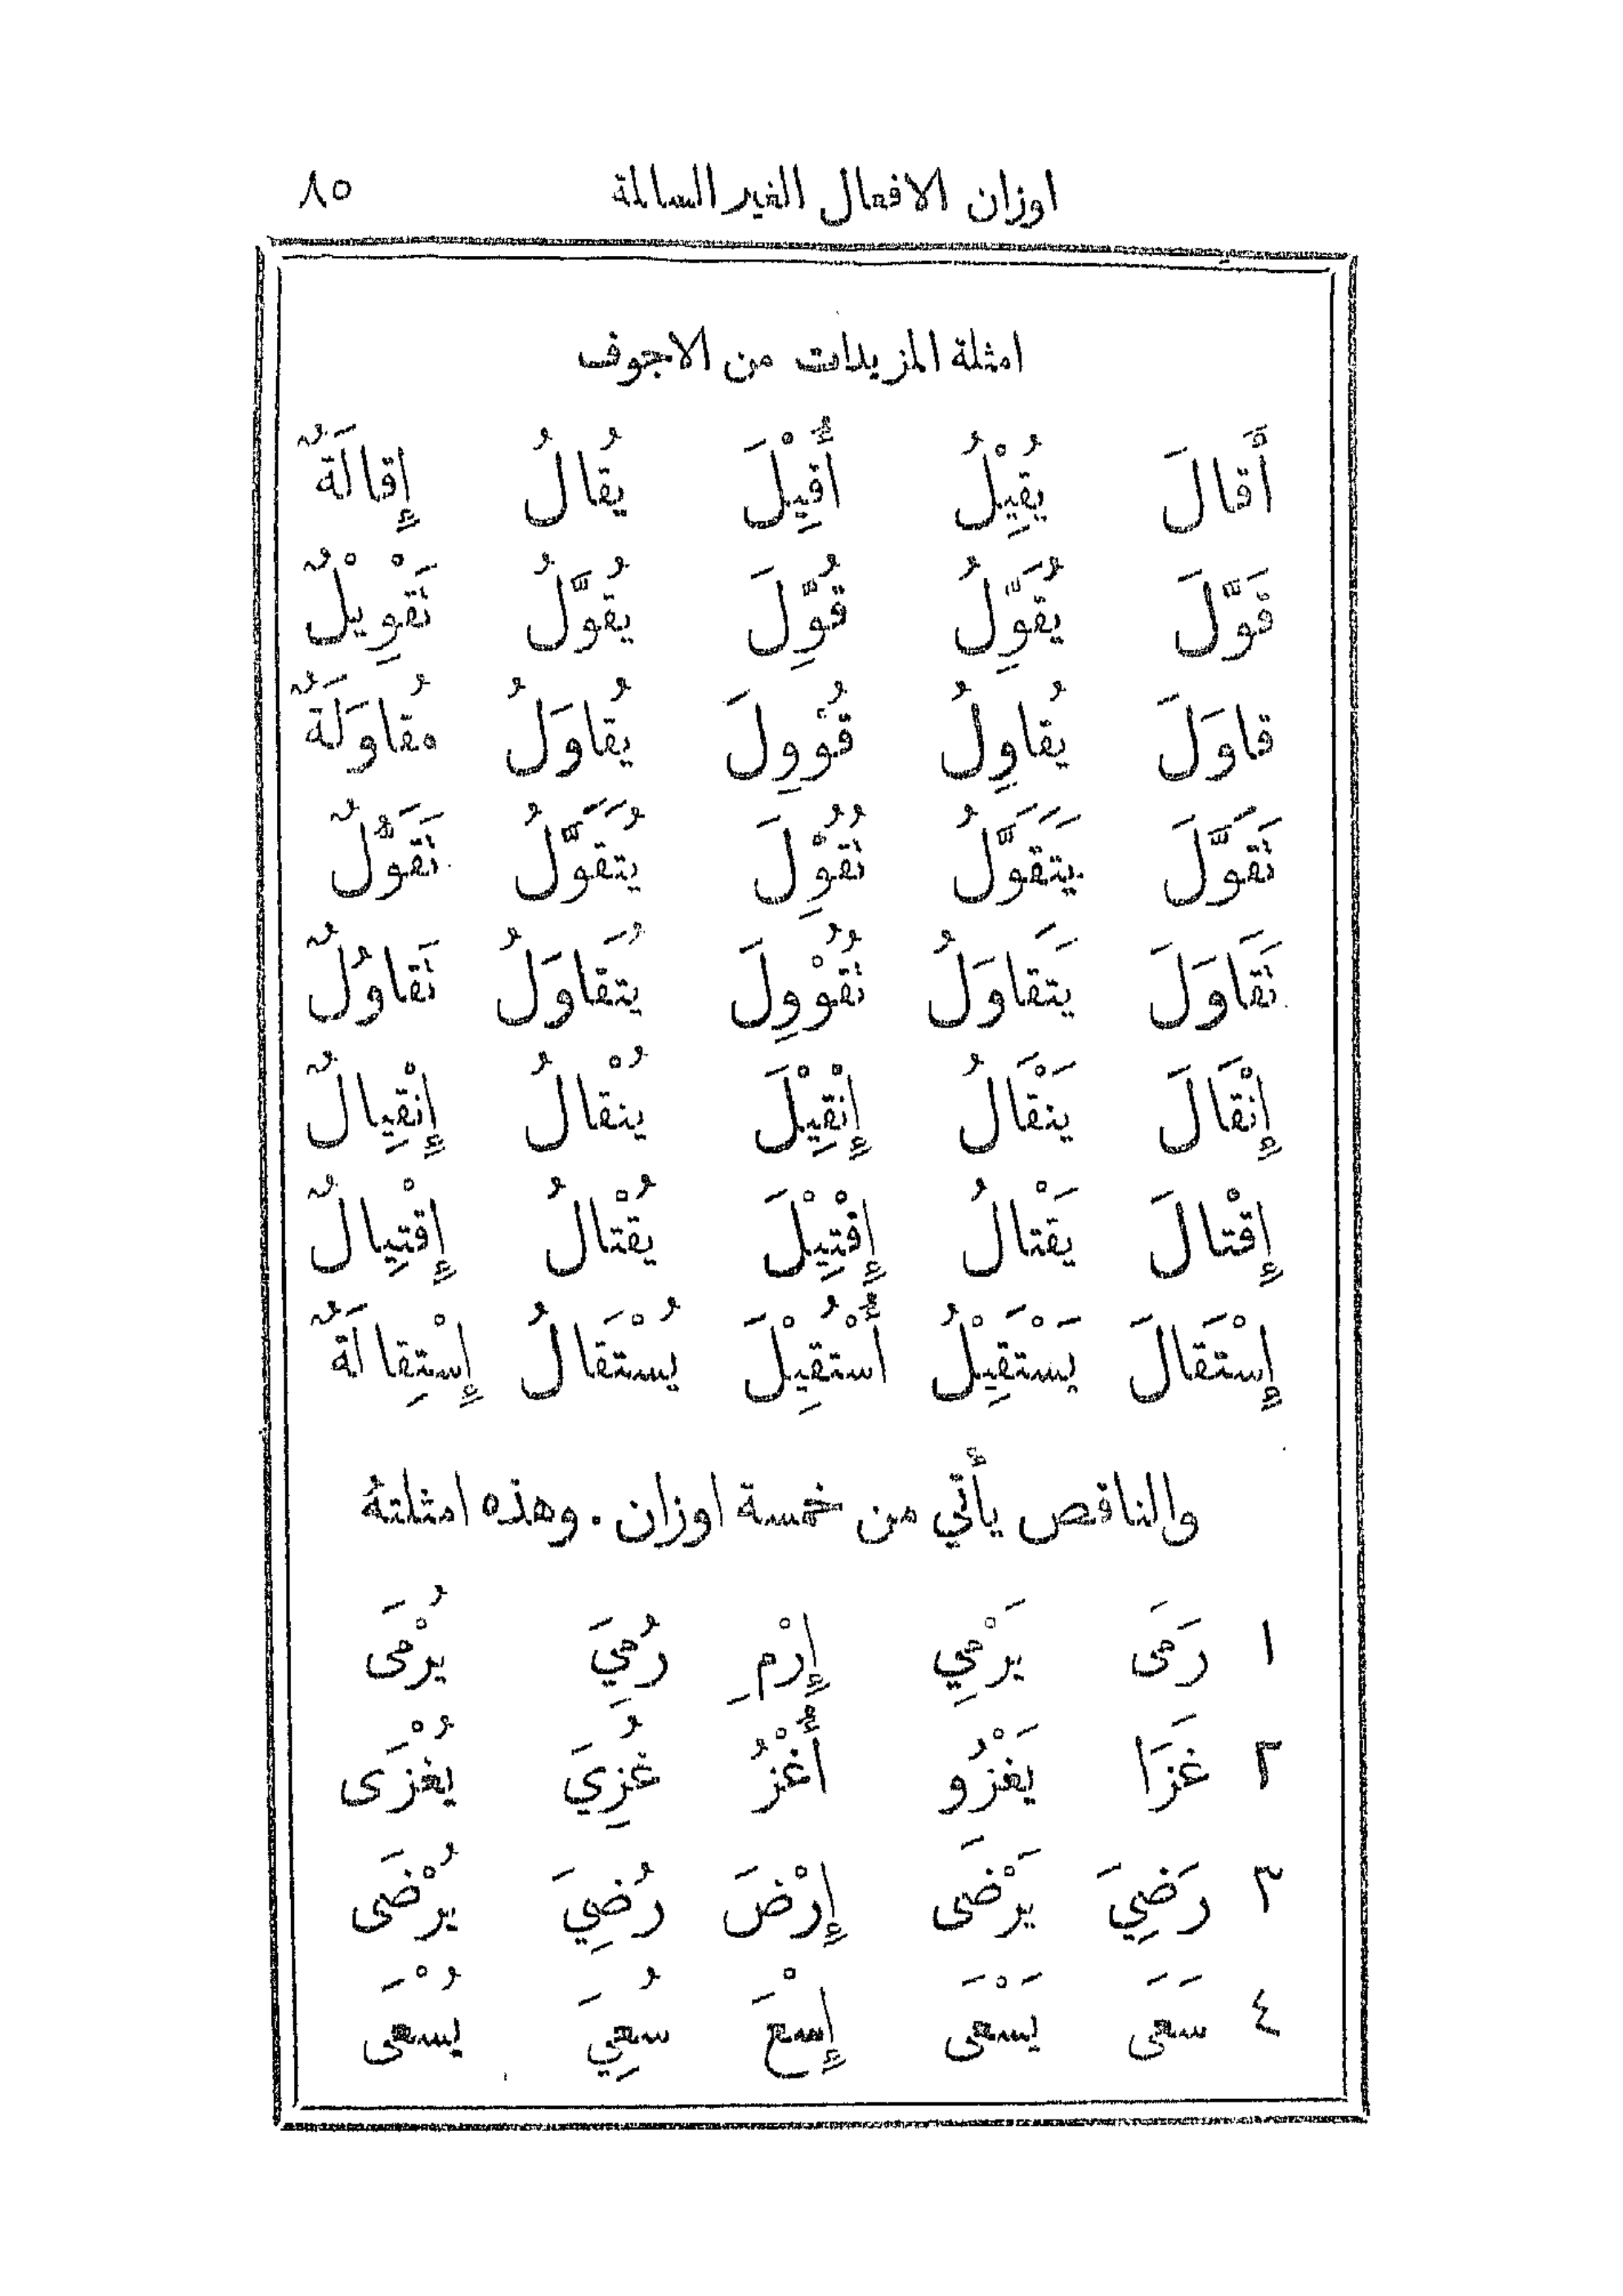 اوزان الافعال الغير السالمة ٨٥
امثلة المزيدات من الاجوف
أَقالَ يُقِيْلُ أُقِيْلَ يُقالُ إِقالَةٌ
قَوَّلَ يُقَوِّلُ قُوِّلَ يُقَوَّلُ تَقْوِيْلٌ
قاوَلَ يُقاوِلُ قُوْوِلَ يُقاوَلُ مُقاوَلَةٌ
تَقَوَّلَ يَتَقَوَّلُ تُقُوِّلَ يُتَقَوَّلُ تَقَوُّلٌ
تَقَاوَلَ يَتَقَاوَلُ تُقُوْوِلَ يُتَقاوَلُ تَقاوُلٌ
إِنْقَالَ يَنْقَالُ إِنْقِيْلَ يُنْقالُ إِنْقِيالٌ
إِقْتالَ يَقْتالُ إِقْتِيْلَ يُقْتالُ إِقْتِيالٌ
إِسْتَقَالَ يَسْتَقِيْلُ أُسْتُقِيْلَ يُسْتَقالُ إِسْتِقالَةٌ
والناقص يأتي من خمسة اوزان . وهذه امثلتهُ
١ رَمَى يَرْمِي إِرْمِ رُمِيَ يُرْمَى
٢ غَزَا يَغْزُو أُغْزُ غُزِيَ يُغْزَى
٣ رَضِيَ يَرْضَى إِرْضَ رُضِيَ يُرْضَى
٤ سَعَى يَسْعَى إِسْعَ سُعِيَ يُسْعَى